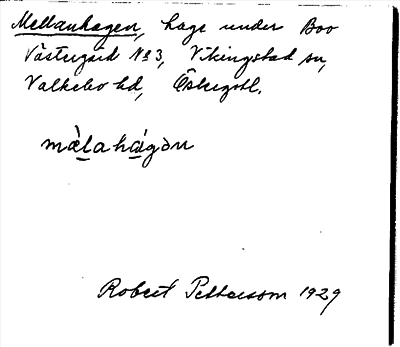 Mellanhagen, hage under Boo
Västergård No 3, Vikingstad sn,
Valkebo hd, Östergötl.
mὰlahágòn
Robert Pettersson 1929